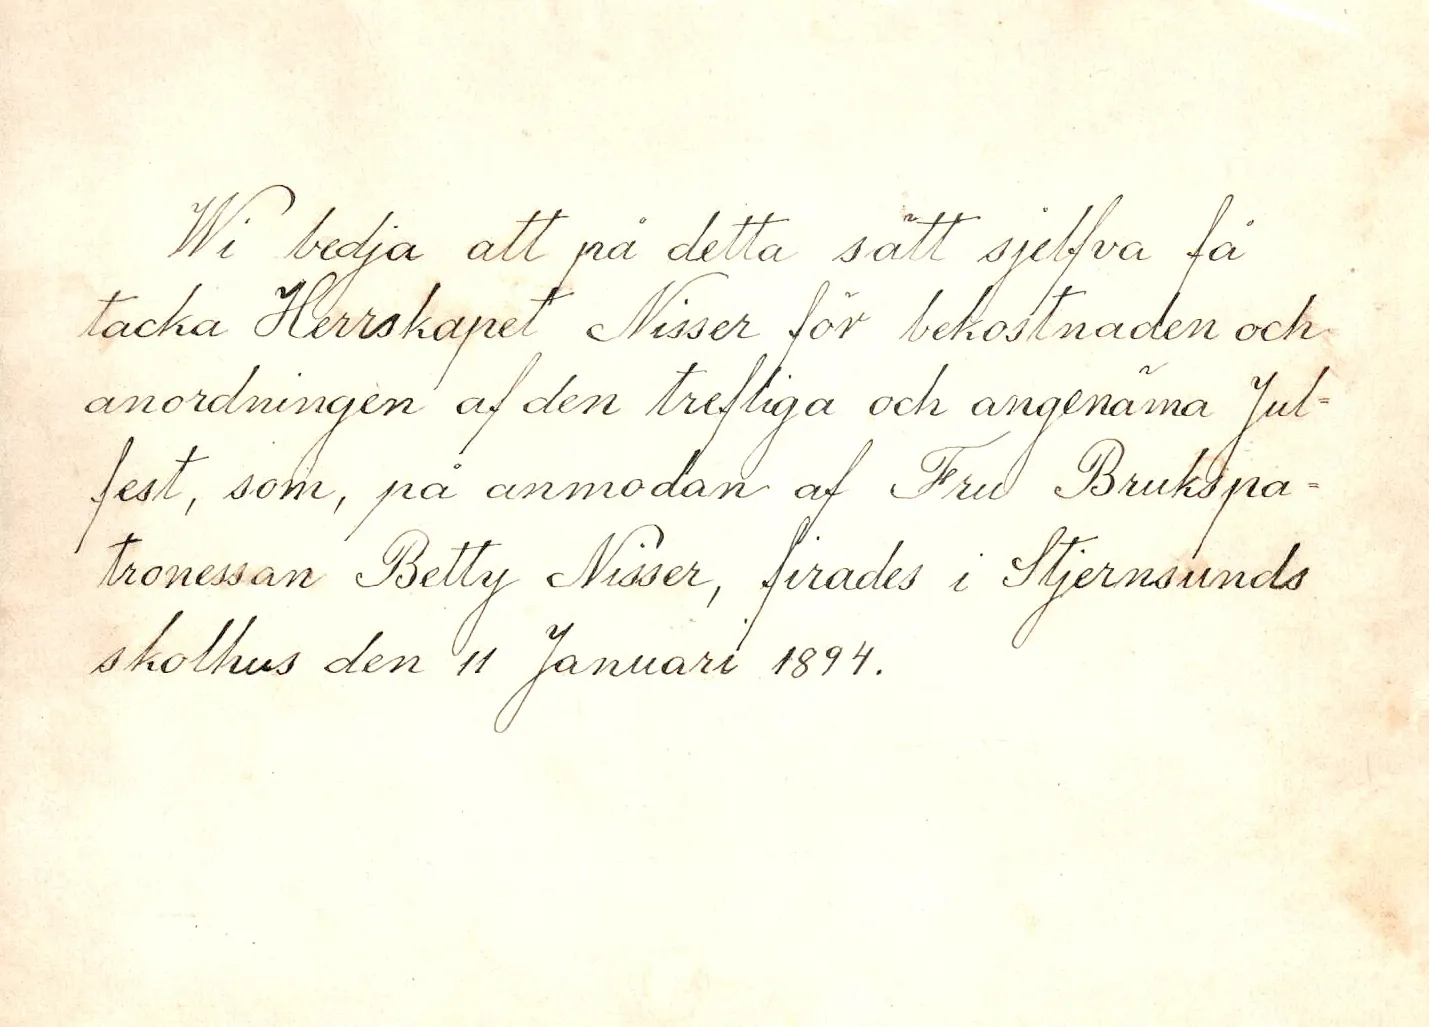 Wi bedja att på detta sätt sjelfva få
tacka Herrskapet Nisser för bekostnaden och
anordningen af den trefliga och angenäma Jul=
fest, som, på anmodan af Fru Brukspa=
tronessan Betty Nisser, firades i Stjernsunds
skolhus den 11 Januari 1894.